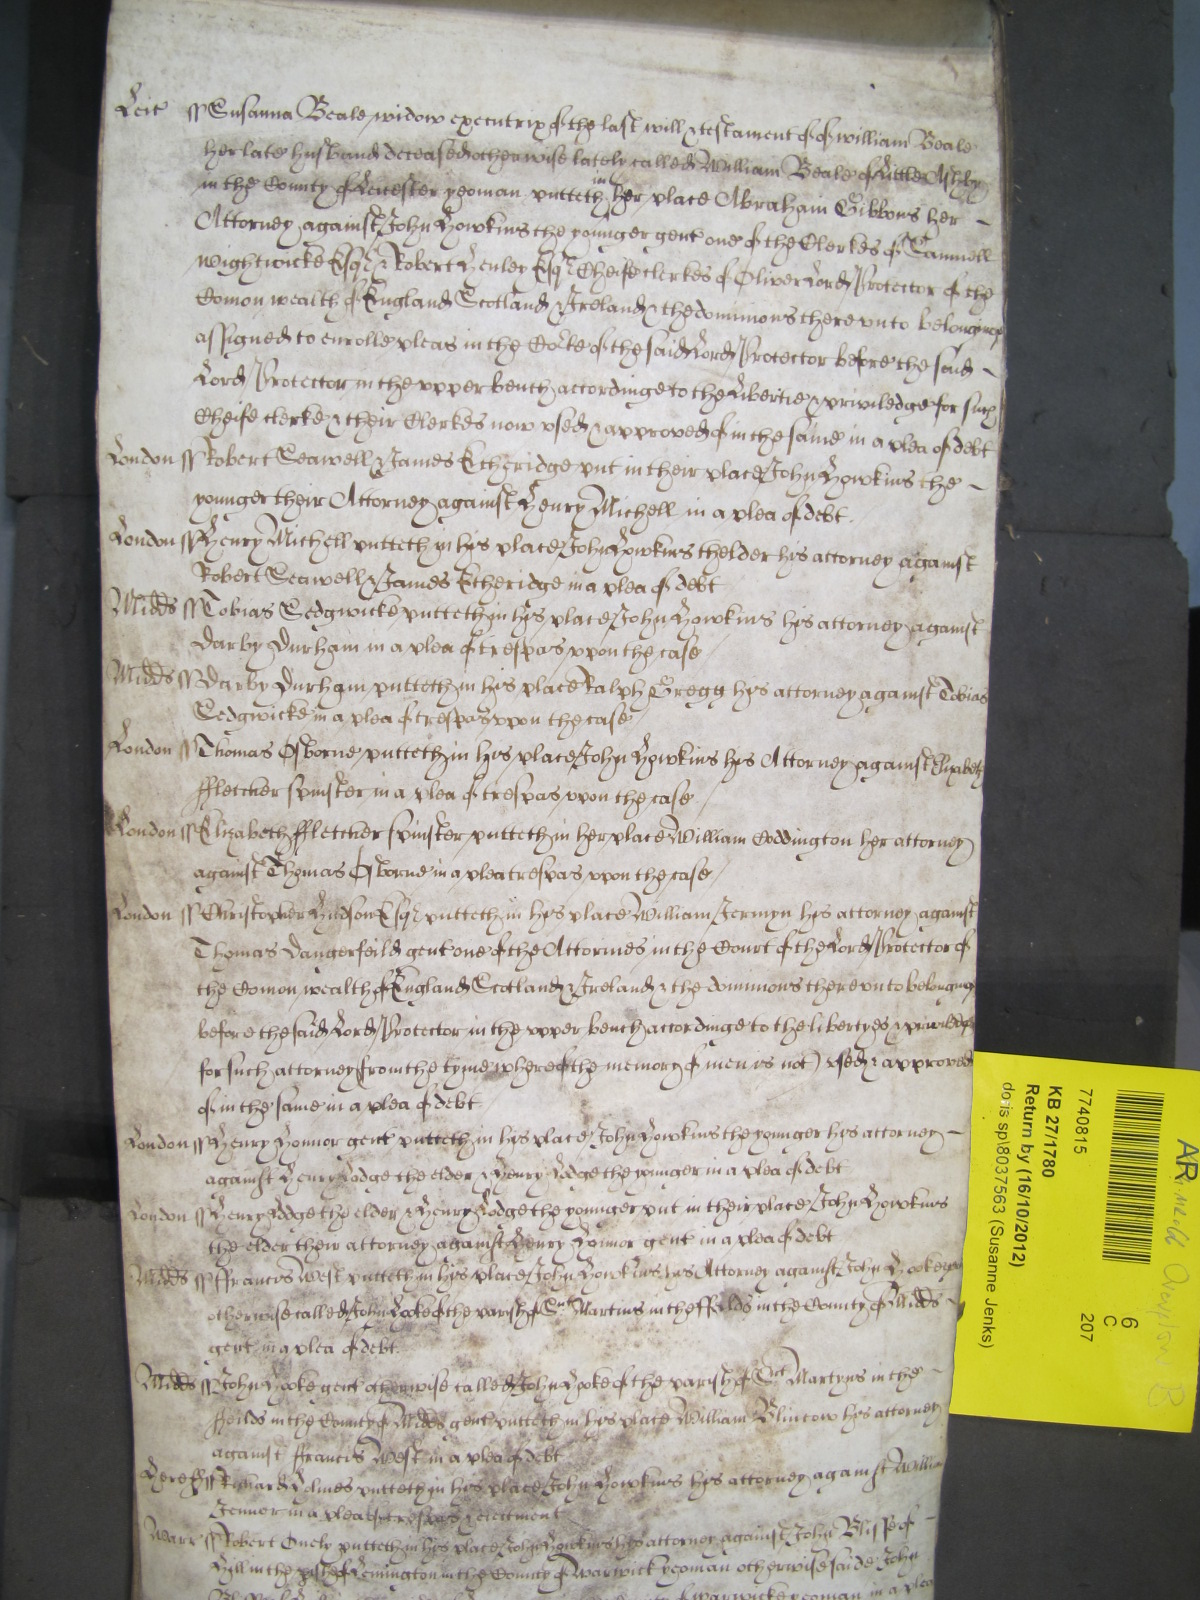 Leic ss Susanna Beale widow executrix of the last will & testament of of william Beale
her late husband deceased otherwise lately called William Beale of Little Ashby
in the County of Leicester yeoman putteth in her place Abraham Gibbons her
Attorney against John Howkins the younger gent one of the Clerkes of Samuell
Wightwicke Esqr & Robert Henley Esqr Cheife clerkes of Oliver Lord Protector of the
Comon wealth of England Scotland & Ireland & the dominions thereunto belonginge
assigned to enrolle pleas in the Corte of the said Lord Protector before the said
Lord Protector in the upper bench accordinge to the Libertie & priviledge for such
Cheife clerke & their Clerkes now used & approved of in the same in a plea of debt
London ss Robert Seawell & James Etheridge put in their place John Howkins the
younger their Attorney against Henry Michell in a plea of debt
London ss Henry Michell putteth in his place John Howkins thelder his attorney against
Robert Seawell & James Etheridge in a plea of debt
Midds ss Tobias Sedgwicke putteth in his place John Howkins his attorney against
Darby Durham in a plea of trespas upon the case
Midds ss Darby Durham putteth in his place Ralph Gregg his attorney against Tobias
Sedgwicke in a plea of trespas upon the case
London ss Thomas Osborne putteth in his place John Howkins his Attorney against Elizabeth
ffletcher spinster in a plea of trespas upon the case
London ss Elizabeth ffletcher spinster putteth in her place William Coddington her attorney
against Thomas Osborne in a plea trespas upon the case
London ss Christopher Hudson Esqr putteth in his place William Jermyn his attorney against
Thomas Dangerfeild gent one of the Attornies in the Court of the Lord Protector of
the Comon wealth of England Scotland & Ireland & the dominions thereunto belonginge
before the said Lord Protector in the upper bench accordinge to the libertyes & priviledges
for such attorney (from the tyme whereof the memory of men is not) used & approved
of in the same in a plea of debt
London ss Henry Honnor gent putteth in his place John Howkins the younger his attorney
against Henry Lodge the elder & Henry Lodge the younger in a plea of debt
London ss Henry Lodge the elder & Henry Lodge the younger put in their place John Howkins
the elder their attorney against Henry Honnor gent in a plea of debt
Midds ss ffrancis West putteth in his place John Howkins his Attorney against John Cooke gent
otherwise called John Cooke of the parish of Sct Martins in the ffeilds in the County of Midds
gent in a plea of debt
Midds ss John Cooke gent otherwise called John Cooke of the parish of Sct Martyns in the
ffeilds in the County of Midds gent putteth in his place William Blincow his attorney
against ffrancis West in a plea of debt
Heref ss Richard Holmes putteth in his place John Howkins his attorney against William
Jennor in a plea of trespas & eiectment
Warr ss Robert Onely putteth in his place John Howkins his attorney against John Blisse of
Hill in the prish of Lemington in the County of Warwick yeoman otherwise saide John
of Warwicke yeoman in a plea
7740815
KB 27/1780
Return by (16/10/2012)
doris sp\8037563 (Susanne Jenks)
6
C
207
AR